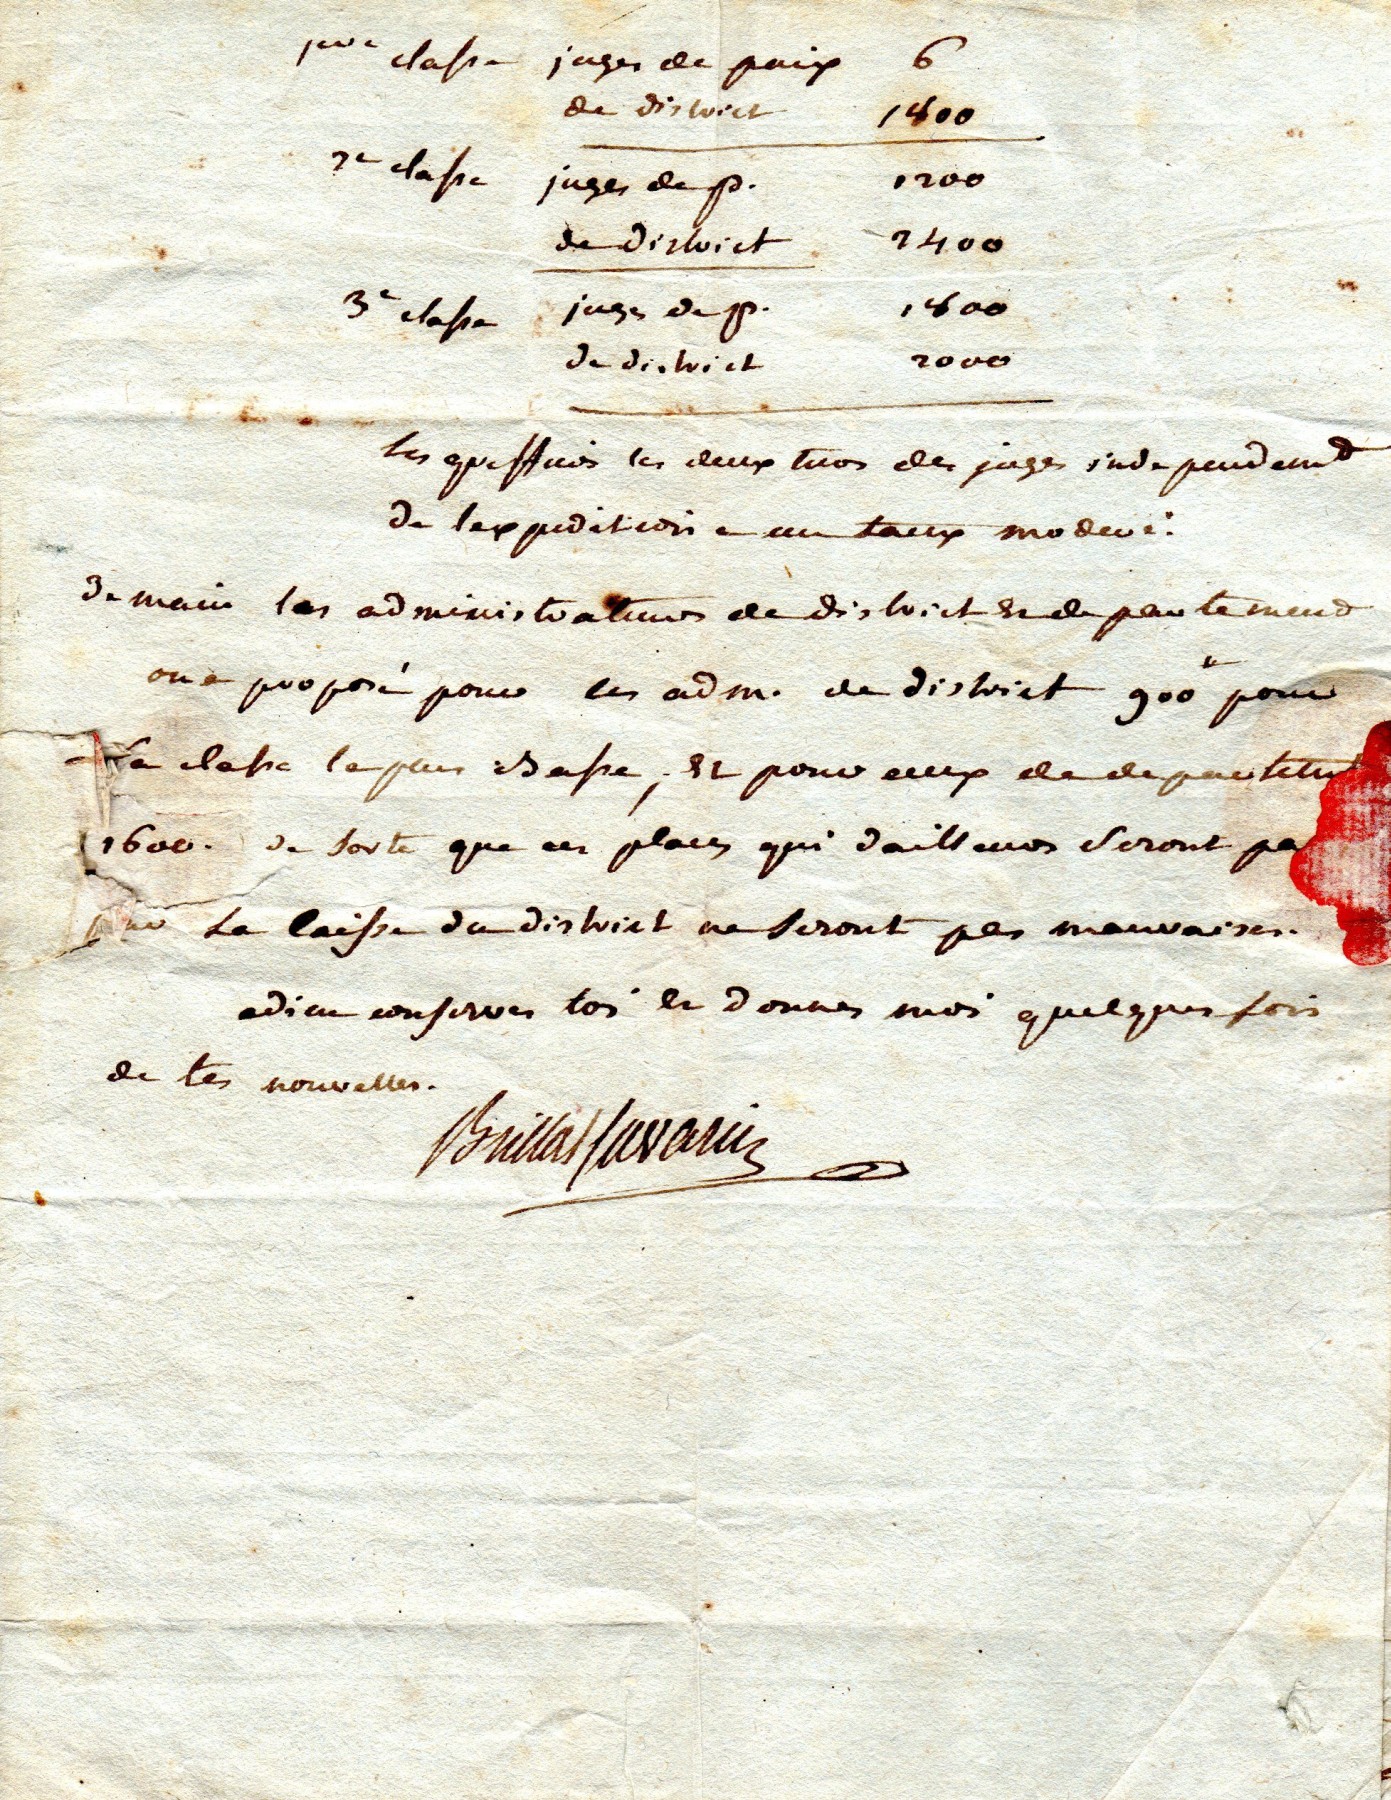 1ere classe juges de paix 6
de district 1800
2e classe juges de p. 1200
de district 2400
3e classe juges de p. 1800
de district 2000
les greffiers les deux tiers des juges independemt
de lexpedition a un taux moderé.
demain les administrateurs de district et departement
on a proposé pour les adm. de district 900tt pour
la classe la plus Basse, et pour ceux de departement
1600. de sorte que ces places qui dailleurs seront
la caisse du district ne seront pas mauvaises.
adieu conserves toi et donnes moi quelques fois
de tes nouvelles.
Brillat Savarin